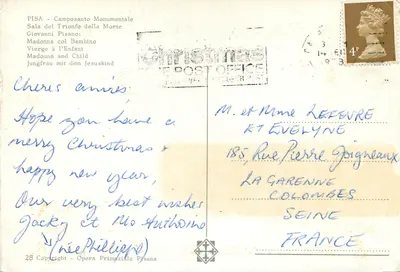 PISA - Camposanto Monumentale
Sala del Trionfo della Morte
Giovanni Pisano:
Madonna col Bambino
Vierge à l'Enfant
Madonna and Child
Jungfrau mit dem Jesuskind
Christmas
POST OFFICE
4P
Chères amies:
Hope you have a
merry Christmas &
happy new year,
Our very best wishes
Jacky et Mo
(née Phillips)
M. et Mme LEFEVRE
ET EVELYNE
185, Rue Pierre Joigneaux
LA GARENNE
COLOMBES
SEINE
FRANCE
28 Copyright - Opera Primaziale Pisana